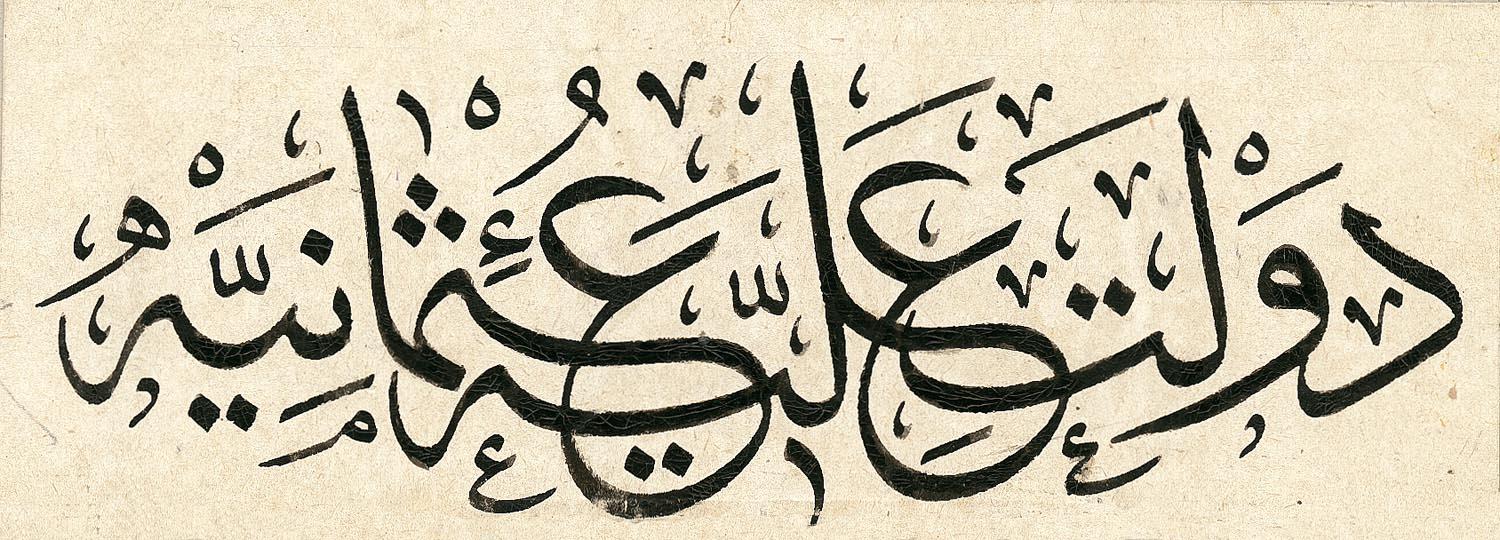 دَوْلَتِ عَلِيَّهٔ عُثْمَانِيَّهْ